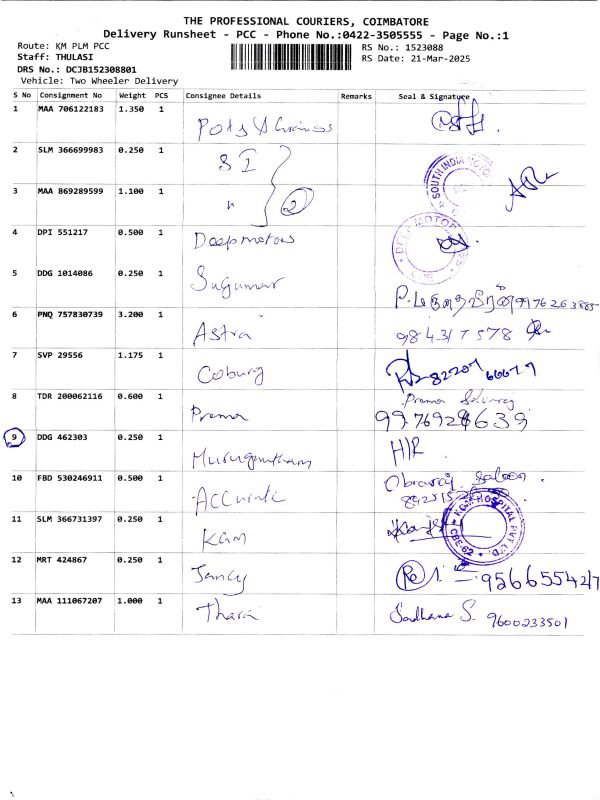 THE PROFESSIONAL COURIERS, COIMBATORE
Delivery Runsheet - PCC - Phone No.:0422-3505555 - Page No.:1
Route: KM PLM PCC
Staff: THULASI
DRS No.: DCJB152308801
Vehicle: Two Wheeler Delivery
RS No.: 1523088
RS Date: 21-Mar-2025
S No Consignment No Weight PCS Consignee Details Remarks Seal & Signature
1 MAA 706122183 1.350 1
2 SLM 366699983 0.250 1 SI SOUTH INDIA MOTO
3 MAA 869289599 1.100 1 " 2
4 DPI 551217 0.500 1 Deepmotors DEEP MOTOR
5 DDG 1014086 0.250 1 Sugumar
6 PNQ 757830739 3.200 1 Astra 984317578
7 SVP 29556 1.175 1 Coburg
8 TDR 200062116 0.600 1 Prema Prema
9 DDG 462303 0.250 1 Murugantham H/R
10 FBD 530246911 0.500 1 Accurate Saloon
11 SLM 366731397 0.250 1 KGM HOSPITAL PVT LTD CBE-62
12 MRT 424867 0.250 1 Jancy
13 MAA 111067207 1.000 1 Thara Sadhana S. 9600233501